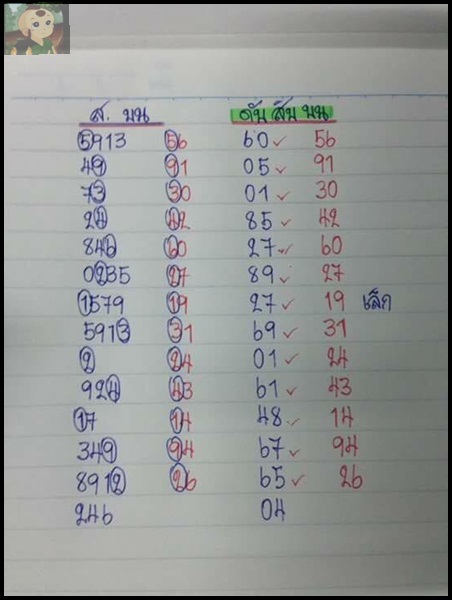 ส. บน ดับ สิบ บน
5913 56 60✓ 56
49 91 05✓ 91
73 30 01✓ 30
24 42 85✓ 42
846 60 27✓ 60
0235 27 89✓ 27
1579 19 27✓ 19 เล็ก
5913 31 69✓ 31
2 24 01✓ 24
924 43 61✓ 43
17 14 48✓ 14
349 94 67✓ 94
8912 26 65✓ 26
246 04